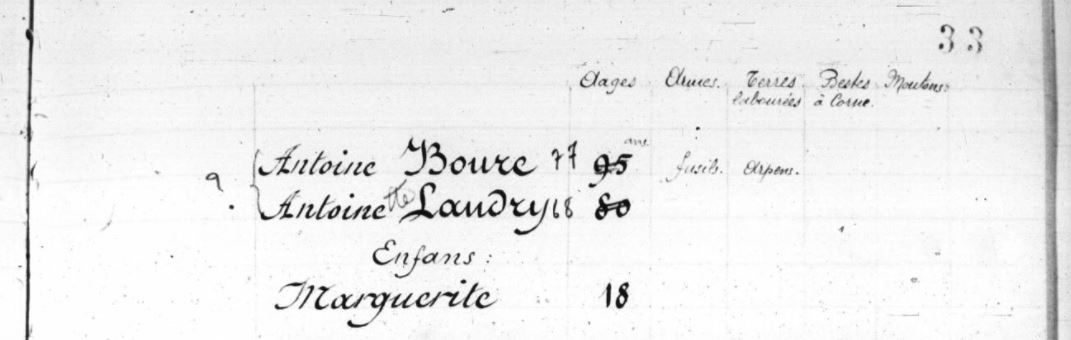 33
Aages Armes. Terres Bestes Moutons.
labourées à Corne.
ans.
Antoine Boure 77 95 fusils. Arpens.
9
Antoinette Landry 68 80
Enfans :
Marguerite 18